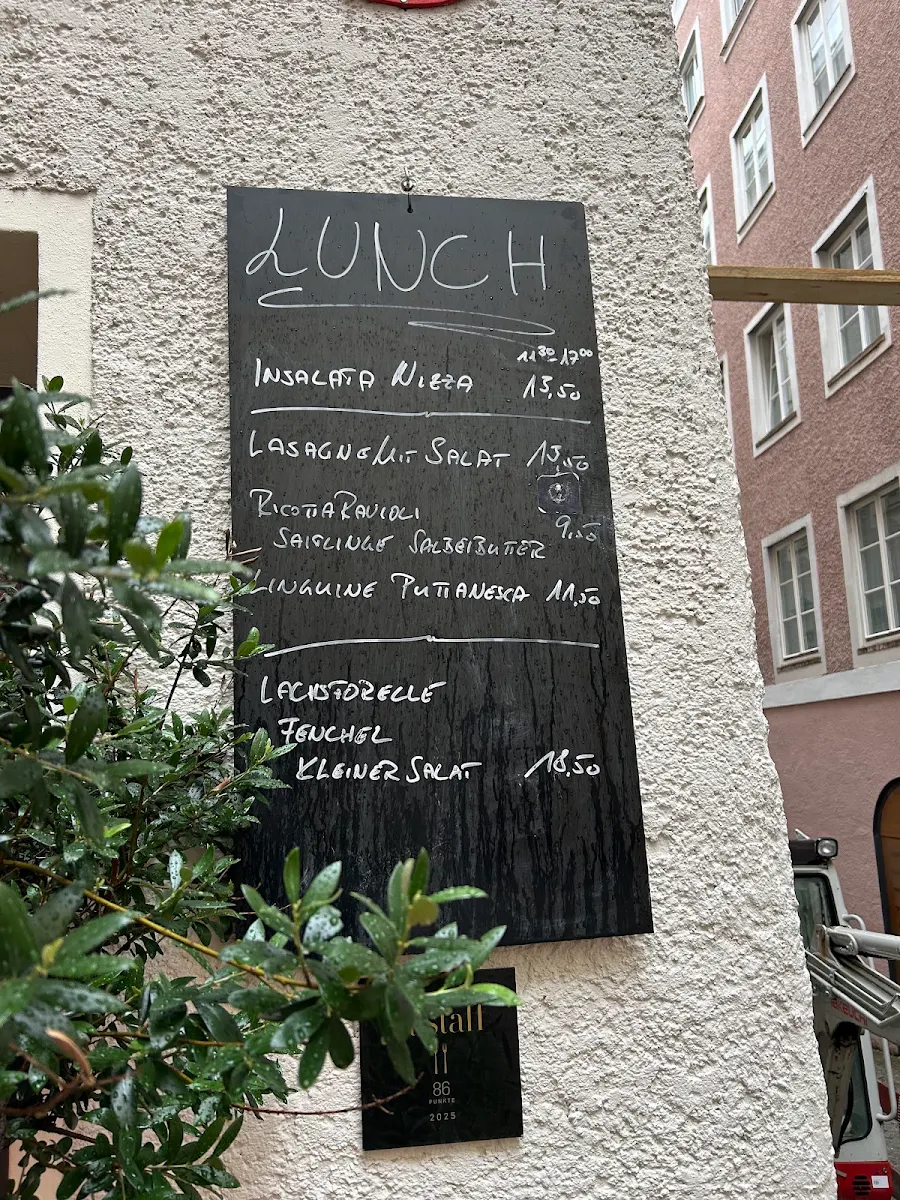 LUNCH
11³⁰-17⁰⁰
INSALATA NIZZA 13,50
LASAGNE MIT SALAT 13,50
RICOTTA RAVIOLI 9,50
SAITLINGE SALBEIBUTTER
LINGUINE PUTTANESCA 11,50
LACHSFORELLE
FENCHEL
KLEINER SALAT 18,50
staff
86
PUNKTE
2025